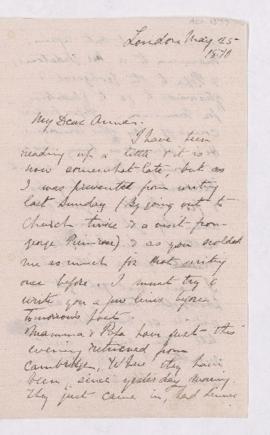 London May 25
1870
My Dear Annan.
I have been
reading up a little & it is
now somewhat late, but as
I was prevented from writing
last Sunday (By going out to
Church twice & a visit from
George Primrose) & as you scolded
me so much for not writing
once before. I must try to
write you a few lines before
tomorrows post.
Mamma & Papa have just this
evening returned from
Cambridge, Where they have
been since yesterday morng.
They just came in, had dinner